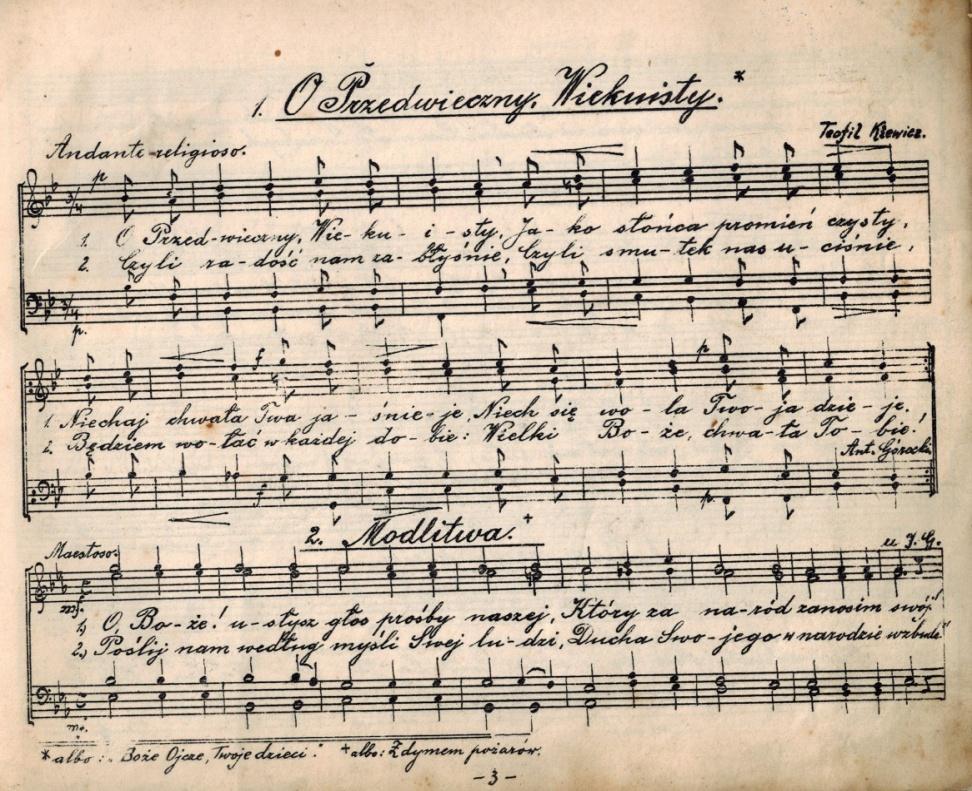 1. O Przedwieczny, Wiekuisty.*
Teofil Krewicz.
Andante religioso.
p
1. O Przed-wieczny, Wie-ku-i-sty, Ja-ko słońca promień czysty,
2. Czyli ra-dość nam za-błyśnie, Czyli smu-tek nas u-ciśnie,
p.
f p
1. Niechaj chwała Twa ja-śnie-je, Niech się wo-la Two-ja dzie-je.
2. Będziem wo-łać w każdej do-bie: Wielki Bo-że, chwa-ła To-bie!
Ant. Górecki
f p
2. Modlitwa.+
Maestoso.
J. G.
mf.
1) O, Bo-że! u-słysz głos prośby naszej, Który za na-ród zanosim swój!
2) Poślij nam według myśli Swej lu-dzi, Ducha Swo-jego w narodzie wzbudź!
* albo: „Boże Ojcze, Twoje dzieci." + albo: Z dymem pożarów.
-3-